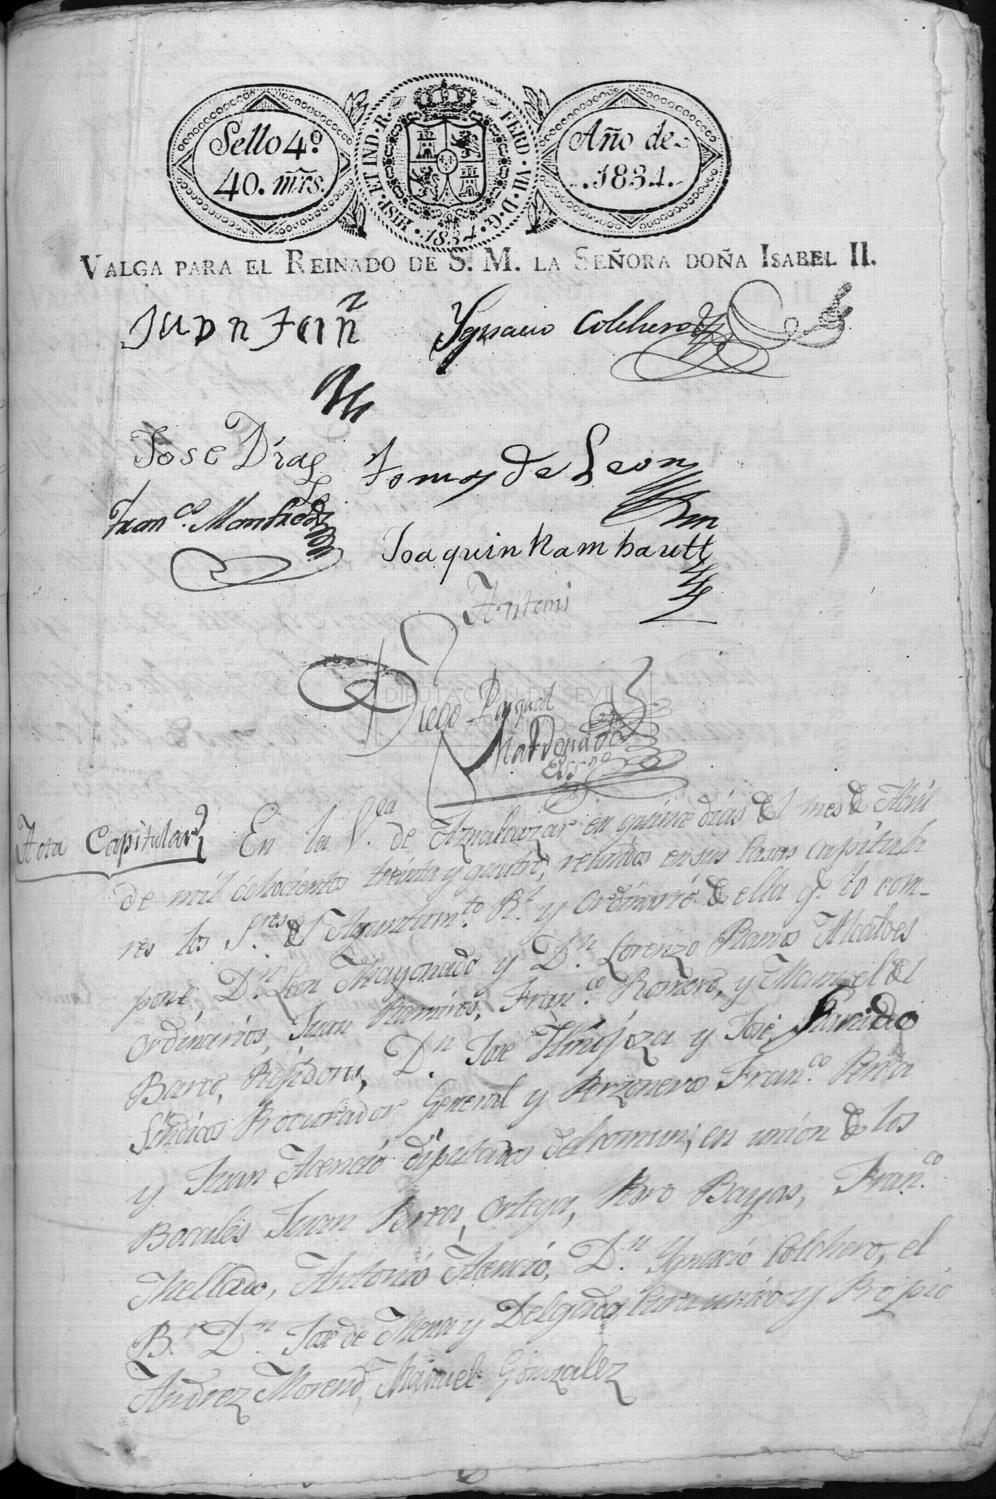 Sello 4º
40. mrs.
HISP. ET IND. R. FERD. VII. D. G. 1834.
Año de
1834.
VALGA PARA EL REINADO DE S. M. LA SEÑORA DOÑA ISABEL II.
Juan
Ygnacio Colchero
Jose Diaz
Tomas de Leon
Franco.
Joaquin Rambautt
Antemi
DIPUTACION DE SEVILLA
Diego Pasqual
Maldonado
Esno
Acta Capitular
En la Va. de Aznalcazar en quince dias del mes de Abril
de mil ochocientos treinta y quatro, reunidos en sus Casas capitula
res los Sres. del Ayuntamto. Rl. y Ordinario de ella qe. lo com-
pone Dn. Leon Mayorado y Dn. Lorenzo Ramos Alcaldes
Ordinarios, Juan Ramires, Franco. Romero, y Manuel del
Barco, Rejidores, Dn. Jose Hinojoza y José Garrido
Sindicos Procurador General y Perzonero Franco. Perea
y Juan Asencio diputados del comun; en unión de los
Bocales Juan Perea, Ortega, Pedro Bayas, Franco.
Mellado, Antonio Asencio, Dn. Ygnacio Colchero, el
Br. Dn. Jose de Mena y Delgado Cura unico y Propio
Andrez Moreno, Manuel Gonzalez